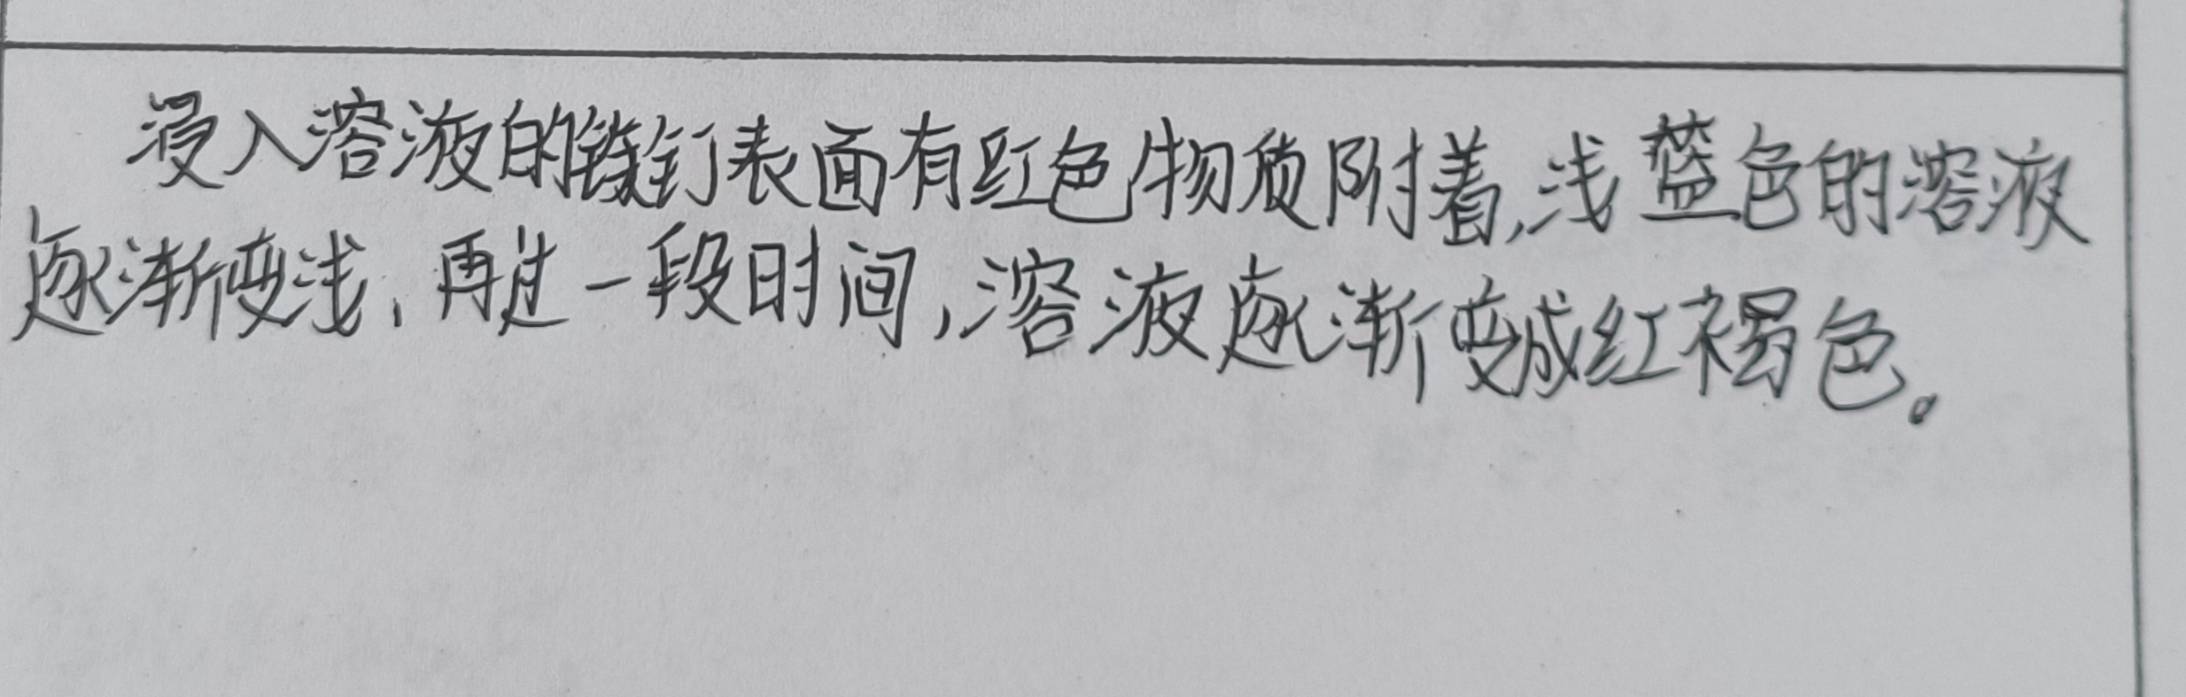 浸入溶液的铁钉表面有红色物质附着,浅蓝色的溶液
逐渐变浅,再过一段时间,溶液逐渐变成红褐色。